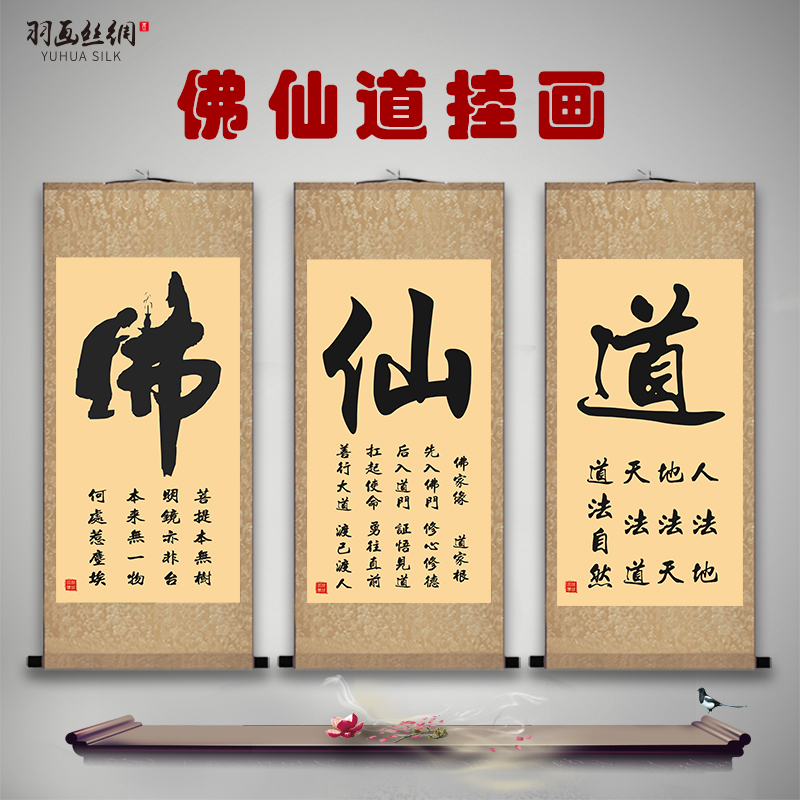 羽画丝綢
YUHUA SILK
佛仙道挂画
佛
菩提本無樹
明鏡亦非台
本来無一物
何處惹塵埃
仙
佛家缘 道家根
先入佛門 修心修德
后入道門 証悟見道
扛起使命 勇往直前
善行大道 渡己渡人
道
人法地
地法天
天法道
道法自然